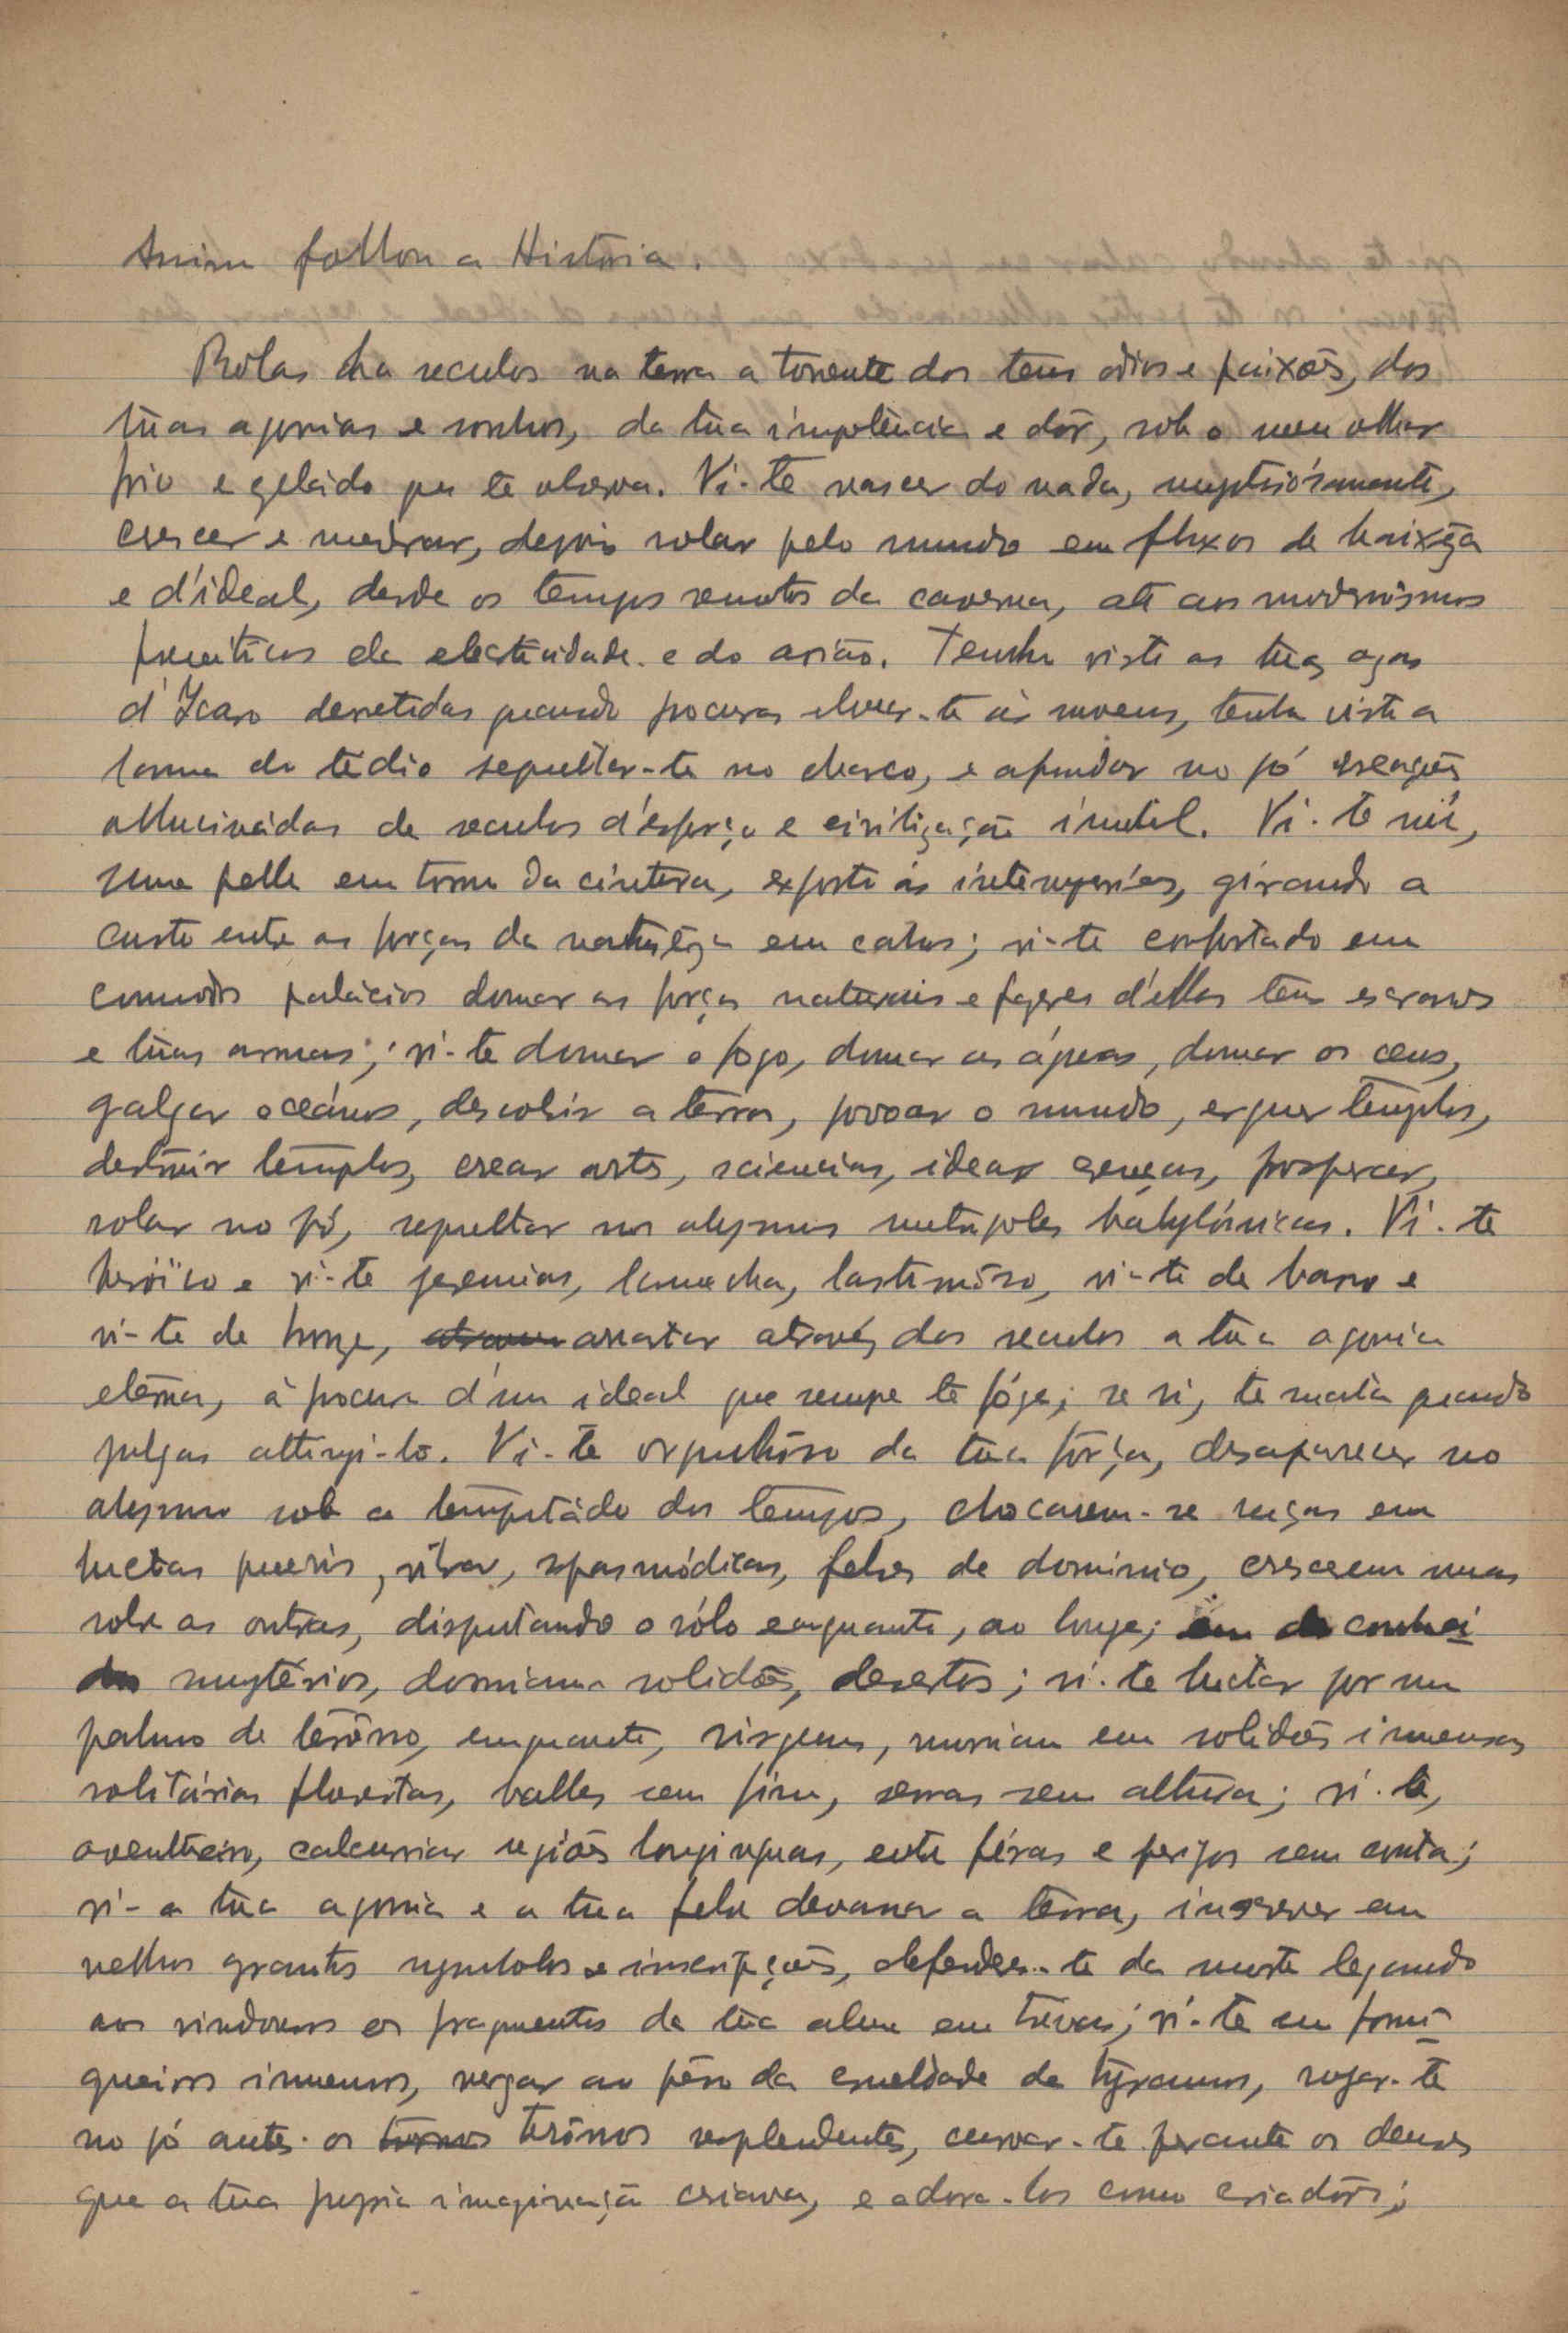 Assim fallou a Historia.
Rólas ha seculos na terra a torrente dos teus odios e paixões, das
túas agonias e sonhos, da túa impotência e dôr, sob o meu olhar
frio e gelado que te observa. Vi-te nascer do nada, mysteriósamente,
crescer e medrar, depois rolar pelo mundo em fluxos de baixêza
e d'ideal, desde os tempos remotos da caverna, até aos modernismos
da electricidade e do avião. Tenho visto as túas azas
d'Icaro derretidas quando procuras elevar-te ás nuvens, tenho visto a
lama do tédio sepultar-te no charco, e afundar no pó creações
allucinádas de seculos d'esforço e civilização inutil. Vi-te nú,
uma pelle em torno da cintura, exposto ás intempéries, girando a
custo entre as forças da naturêza em cahos; vi-te confortado em
commodos palácios domar as forças naturais e fazeres d'ellas teus escravos
e túas armas; vi-te domar o fogo, domar as águas, domar os ceus,
galgar oceános, descobrir a terra, povoar o mundo, erguer templos,
destruir templos, crear artes, sciencias, idear crenças, prosperar,
rolar no pó, sepultar nos abysmos metrópoles babylónicas. Vi-te
heróïco e vi-te jeremias, lamecha, lastimôso, vi-te de barro e
vi-te de bronze, arrastar através dos seculos a túa agonia
eterna, á procura d'um ideal que sempre te fóge; se ri, te mata quando
julgas attingi-lo. Vi-te orgulhôso da túa fôrça, desaparecer no
abysmo sob a tempestáde dos tempos, chocarem-se raças em
luctas pueris, spasmódicas, febres de dominio, crescerem umas
sobre as outras, disputando o sólo emquanto, ao longe;
mystérios, dormiam solidões, desertos; vi-te luctar por um
palmo de terrêno, emquanto, virgens, murriam em solidões immensas
solitárias florestas, valles sem fim, serras sem altura; vi-te,
aventureiro, calcurriar regiões longinquas, entre féras e perigos sem conta;
vi-a túa agonia e a túa febre devassar a terra, inscrever em
velhos granitos symbolos e inscripções, defender-te da morte legando
aos vindouros os fragmentos da túa alma em trevas; vi-te em formi-
gueiros immensos, vergar ao pêso da crueldade de tyrannos, rojar-te
no pó ante os thrônos resplendentes, curvar-te perante os deuses
que a túa propria imaginação criava, e adora-los como criadôres;